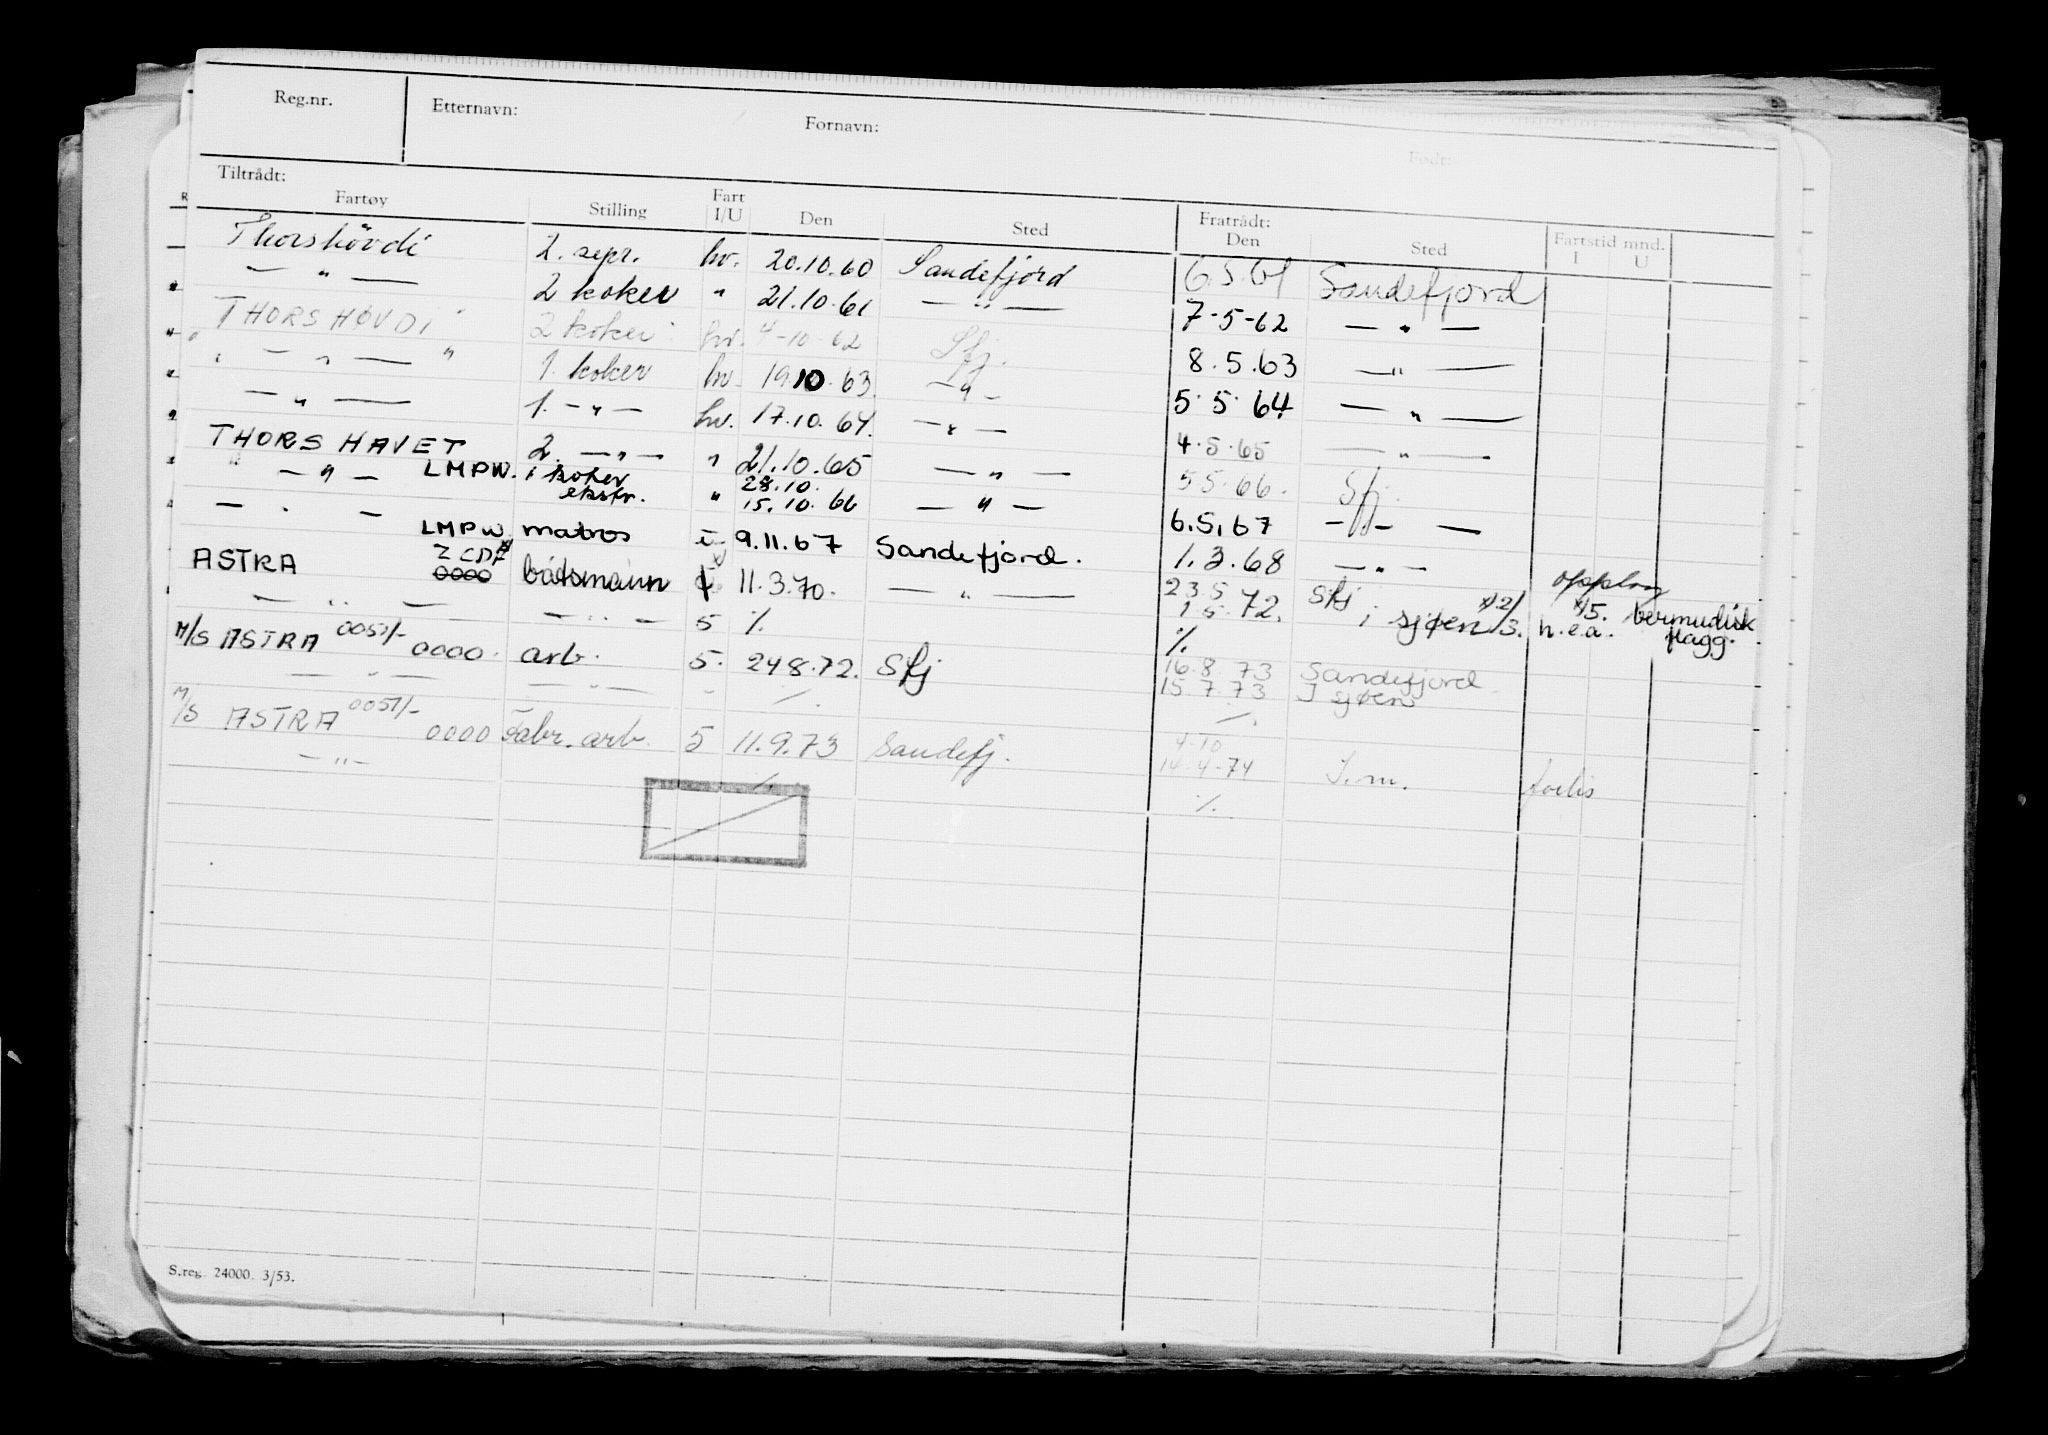 Reg.nr. Etternavn: Fornavn: Født:
Tiltrådt: Fratrådt:
Fartøy Stilling Fart I/U Den Sted Den Sted Fartstid mnd. I U
Thorshövdi 2. sepr. hv. 20.10.60 Sandefjord 6.5.61 Sandefjord
— " — 2 koker " 21.10.61 — " — 7-5-62 — " —
"THORSHØVDI" 2 koker hv. 4-10-62 Sfj. 8.5.63 — " —
" — " — " 1. koker hv. 19.10.63 — " — 5.5.64 — " —
— " — 1. — " — hv. 17.10.64. — " — 4.5.65 — " —
THORSHAVET 2. — " — " 21.10.65 — " — 5.5.66. Sfj.
" — " — LMPW. 1 koker ekstr. " 28.10. 15.10.66 — " — 6.5.67 — " — —
— " — LMPW. matros u 9.11.67 Sandefjord. 1.3.68 — " —
ASTRA 0000 båtsmann 11.3.70. — " — 23.5 72. Sfj opplag
— " — — " — 5 % 1.5 i sjøen x/2/3. x/5. h.e.a. bermudisk flagg.
M/S ASTRA 0051/- 0000. arb. 5. 24.8.72. Sfj %
— " — — " — " % 16.8.73 Sandefjord
15.7.73 I sjøen
M/S ASTRA 0051/- 0000 Fabr. arb. 5 11.9.73 Sandefj. %
— " — % 4-10
14-4-74 S.m.
%
S.reg. 24000. 3/53.